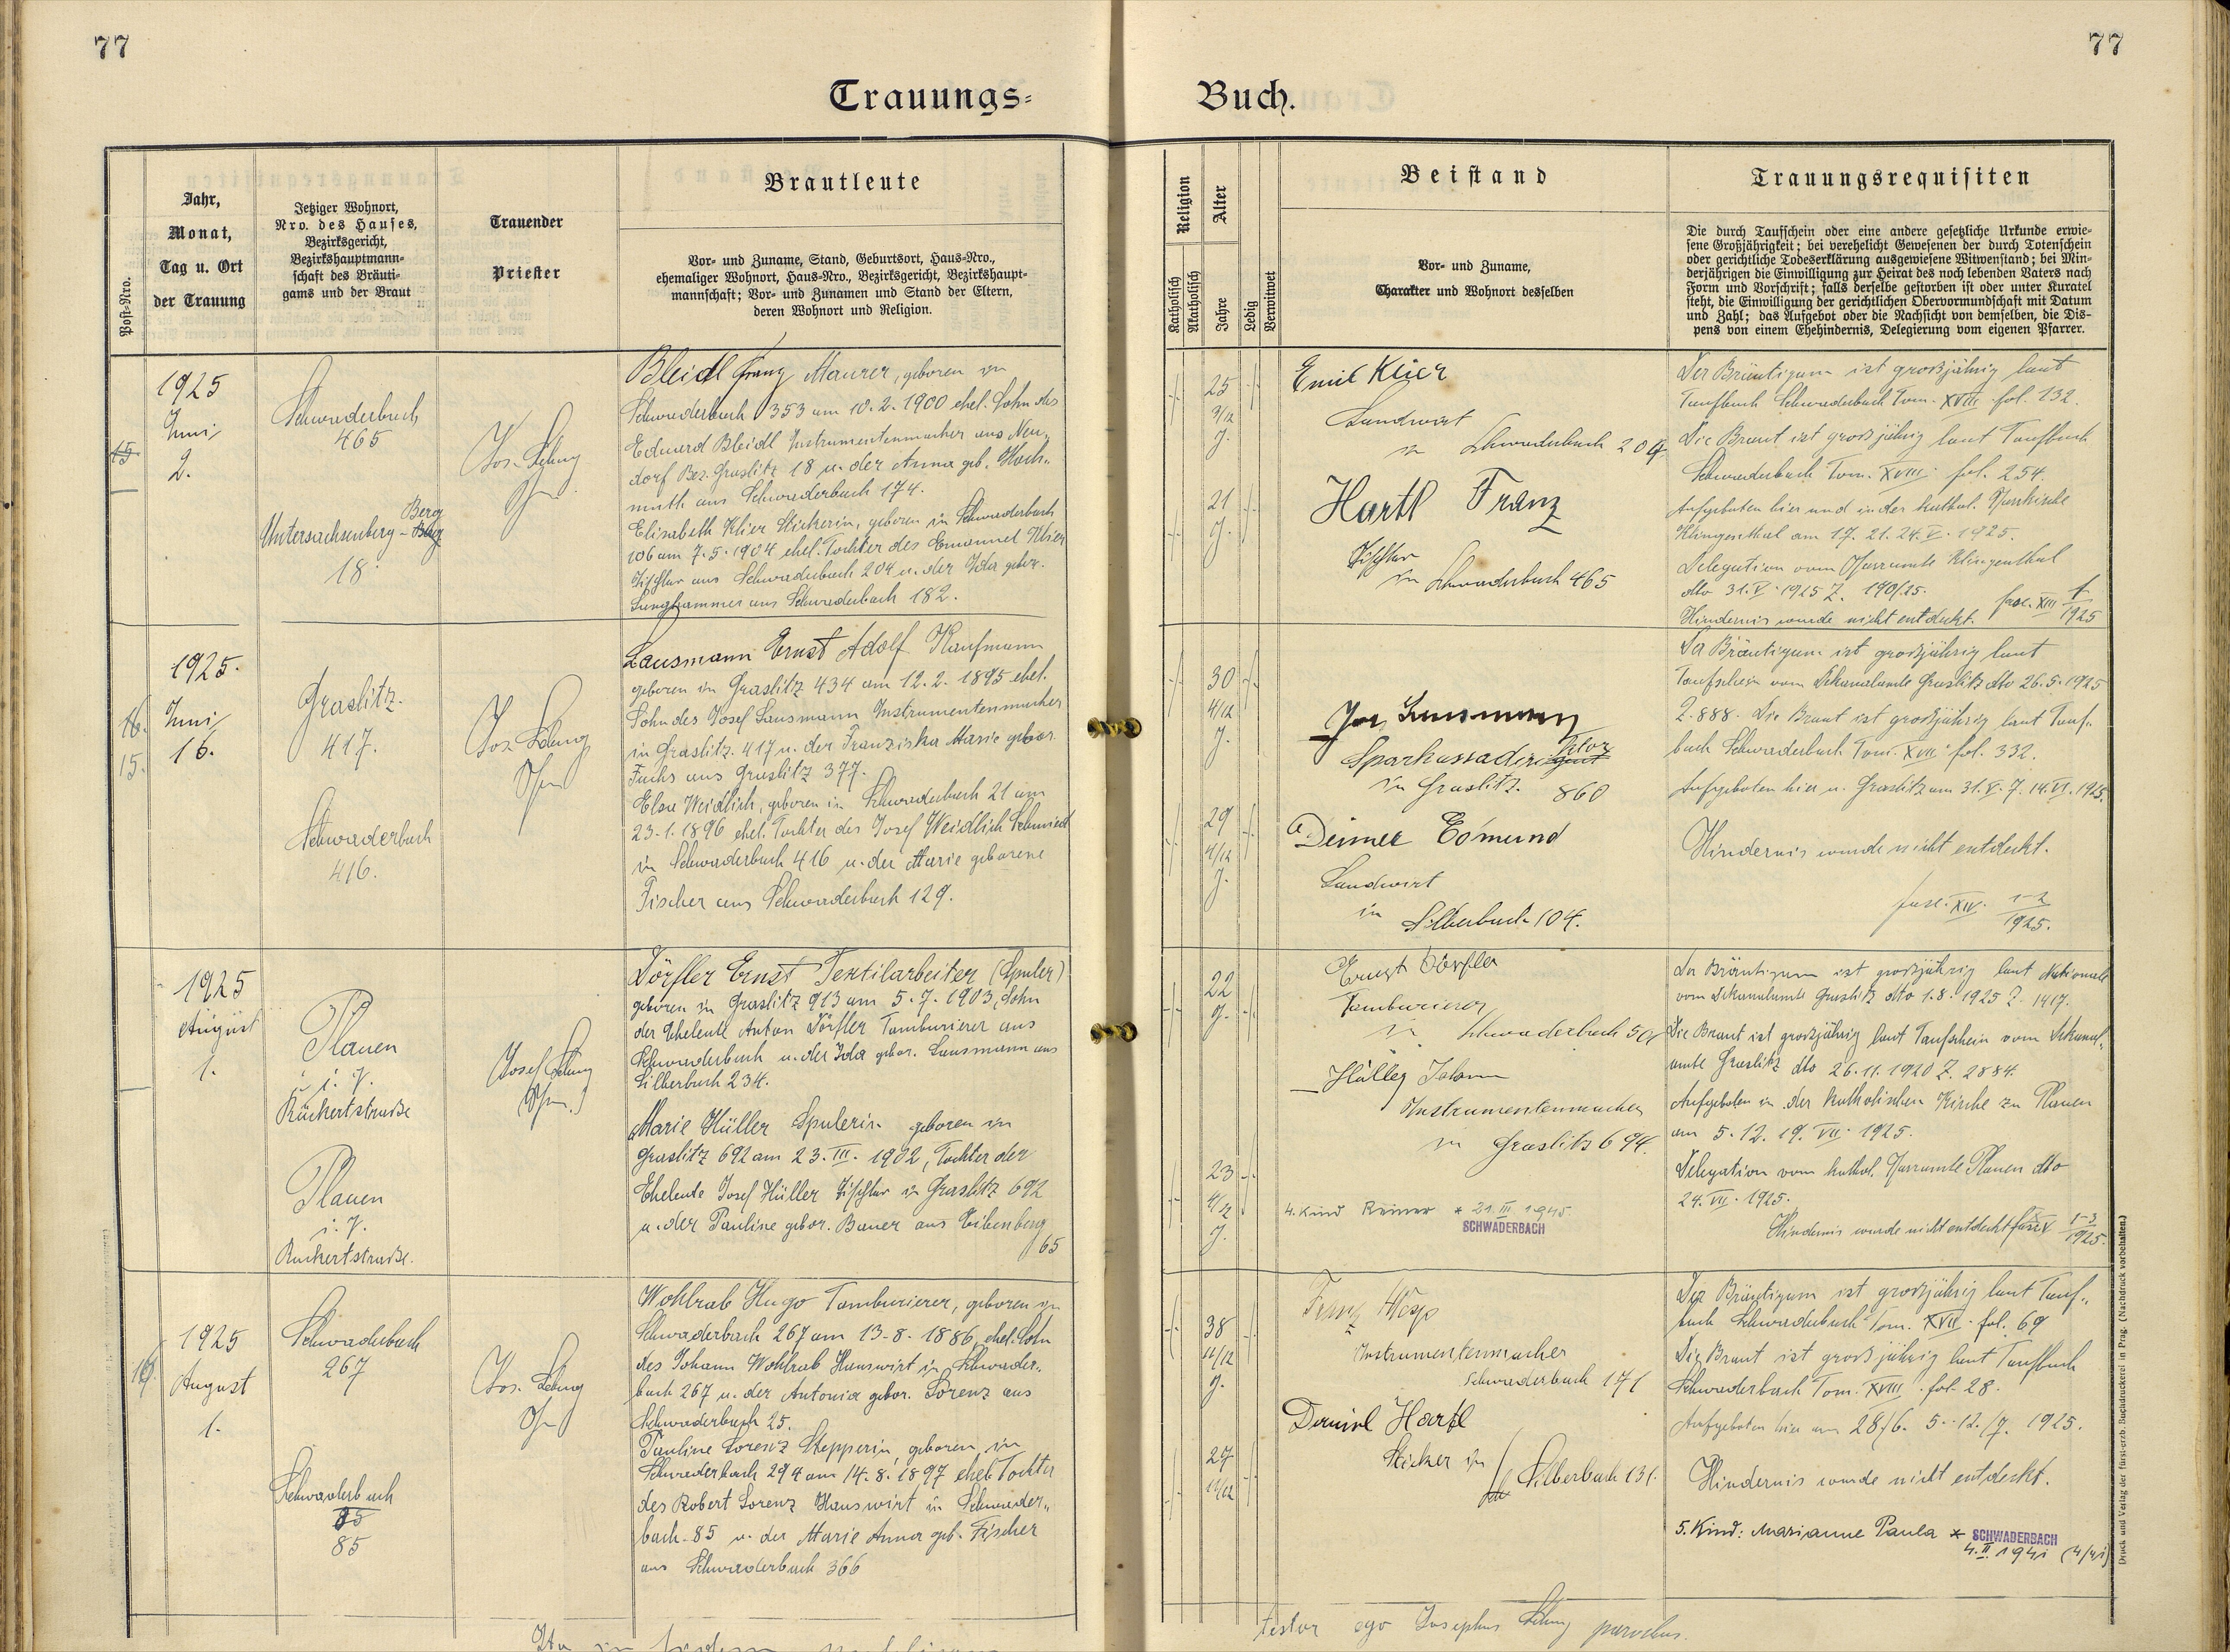 77
77
Trauungs-
Buch.
Post-Nro.
Jahr,
Monat,
Tag u. Ort
der Trauung
Jetziger Wohnort,
Nro. des Hauses,
Bezirksgericht,
Bezirkshauptmann-
schaft des Bräuti-
gams und der Braut
Trauender
Priester
Brautleute
Vor- und Zuname, Stand, Geburtsort, Haus-Nro.,
ehemaliger Wohnort, Haus-Nro., Bezirksgericht, Bezirkshaupt-
mannschaft; Vor- und Zunamen und Stand der Eltern,
deren Wohnort und Religion.
Religion
Katholisch
Akatholisch
Alter
Jahre
Ledig
Verwitwet
Beistand
Vor- und Zuname,
Charakter und Wohnort desselben
Trauungsrequisiten
Die durch Taufschein oder eine andere gesetzliche Urkunde erwie-
sene Großjährigkeit; bei verehelicht Gewesenen der durch Totenschein
oder gerichtliche Todeserklärung ausgewiesene Witwenstand; bei Min-
derjährigen die Einwilligung zur Heirat des noch lebenden Vaters nach
Form und Vorschrift; falls derselbe gestorben ist oder unter Kuratel
steht, die Einwilligung der gerichtlichen Obervormundschaft mit Datum
und Zahl; das Aufgebot oder die Nachsicht von demselben, die Dis-
pens von einem Ehehindernis, Delegierung vom eigenen Pfarrer.
15
1925
Juni
2.
Schwaderbach
465
Untersachsenberg - Berg
18
Jos.
Bleidl Franz Maurer, geboren in
Schwaderbach 353 am 10.2.1900 ehel. Sohn des
Eduard Bleidl Instrumentenmacher aus Neu-
dorf Bez. Graslitz 18 u. der Anna geb. Hoch-
muth aus Schwaderbach 174.
Elisabeth Klier Stickerin, geboren in Schwaderbach
106 am 7.5.1904 ehel. Tochter des Emanuel Klier
Tischler aus Schwaderbach 204 u. der Ida gebor.
Langhammer aus Schwaderbach 182.
25
9/12
J.
21
J.
Emil Klier
Landwirt
in Schwaderbach 204
Hartl Franz
Tischler
in Schwaderbach 465
Der Bräutigam ist großjährig laut
Taufbuch Schwaderbach Tom. XVIII fol. 132.
Die Braut ist großjährig laut Taufbuch
Schwaderbach Tom. XVIII fol. 254.
Aufgeboten hier und in der kathol. Pfarrkirche
Klingenthal am 17. 21. 24. V. 1925.
Delegation vom Pfarramte Klingenthal
dto 31.V.1925 Z. 190/25.
Hindernis wurde nicht entdeckt. fasc. XIII 1/1925
16.
15.
1925.
Juni
16.
Graslitz
417.
Schwaderbach
416.
Jos.
Lausmann Ernst Adolf Kaufmann
geboren in Graslitz 434 am 12.2.1895 ehel.
Sohn des Josef Lausmann Instrumentenmacher
in Graslitz 417 u. der Franziska Marie gebor.
Fuchs aus Graslitz 377.
Elsa Weidlich, geboren in Schwaderbach 21 am
23.1.1896 ehel. Tochter des Josef Weidlich Schmied
in Schwaderbach 416 u. der Marie geborene
Fischer aus Schwaderbach 129.
30
4/12
J.
29
4/12
J.
Jos. Lausmann
Sparkassadirektor
in Graslitz 860
Deimer Edmund
Landwirt
in Silberbach 104.
Der Bräutigam ist großjährig laut
Taufschein vom Dekanalamte Graslitz dto 26.5.1925
Z. 888. Die Braut ist großjährig laut Tauf-
buch Schwaderbach Tom. XVII fol. 332.
Aufgeboten hier u. Graslitz am 31.V. 7. 14.VI.1925.
Hindernis wurde nicht entdeckt.
fasc. XIV. 1-2/1925.
1925
August
1.
Plauen
i. V.
Rückertstraße
Plauen
i. V.
Rückertstraße.
Josef
Dörfler Ernst Textilarbeiter (Spuler)
geboren in Graslitz 913 am 5.7.1903, Sohn
der Eheleute Anton Dörfler Tamburierer aus
Schwaderbach u. der Ida gebor. Lausmann aus
Silberbach 234.
Marie Hüller Spulerin geboren in
Graslitz 692 am 23.III.1902, Tochter der
Eheleute Josef Hüller Tischler in Graslitz 692
u. der Pauline gebor. Bauer aus Eibenberg
65
22
J.
23
4/12
J.
Ernst Dörfler
Tamburierer
in Schwaderbach
Hüller Johann
Instrumentenmacher
in Graslitz 694.
4. Kind Reiner * 21.III.1945
SCHWADERBACH
Der Bräutigam ist großjährig laut Nationale
vom Dekanalamte Graslitz dto 1.8.1925 Z. 1417.
Die Braut ist großjährig laut Taufschein vom Dekanal-
amte Graslitz dto 26.11.1920 Z. 2884.
Aufgeboten in der katholischen Kirche zu Plauen
am 5. 12. 19. VII. 1925.
Delegation vom kathol. Pfarramte Plauen dto
24.VII.1925.
Hindernis wurde nicht entdeckt fasc. 1-3/1925.
16
1925
August
1.
Schwaderbach
267
Schwaderbach
85
85
Jos.
Wohlrab Hugo Tamburierer, geboren in
Schwaderbach 267 am 13.8.1886, ehel. Sohn
des Johann Wohlrab Hauswirt in Schwader-
bach 267 u. der Antonia gebor. Lorenz aus
Schwaderbach 25.
Pauline Lorenz Stepperin, geboren in
Schwaderbach 294 am 14.8.1897 ehel. Tochter
des Robert Lorenz Hauswirt in Schwader-
bach 85 u. der Marie Anna geb. Fischer
aus Schwaderbach 366
38
11/12
J.
27
11/12
Franz
Instrumentenmacher
Schwaderbach 171
Daniel Hartl
Sticker in
Silberbach 131.
Der Bräutigam ist großjährig laut Tauf-
buch Schwaderbach Tom. XVII fol. 69
Die Braut ist großjährig laut Taufbuch
Schwaderbach Tom. XVIII fol. 28.
Aufgeboten hier am 28/6. 5. 12./7. 1925.
Hindernis wurde nicht entdeckt.
5. Kind: Marianne Paula * SCHWADERBACH
4.II.1941 (4/41)
testor ego Josephus parochus.
Druck und Verlag der fürst-erzb. Buchdruckerei in Prag. (Nachdruck vorbehalten.)